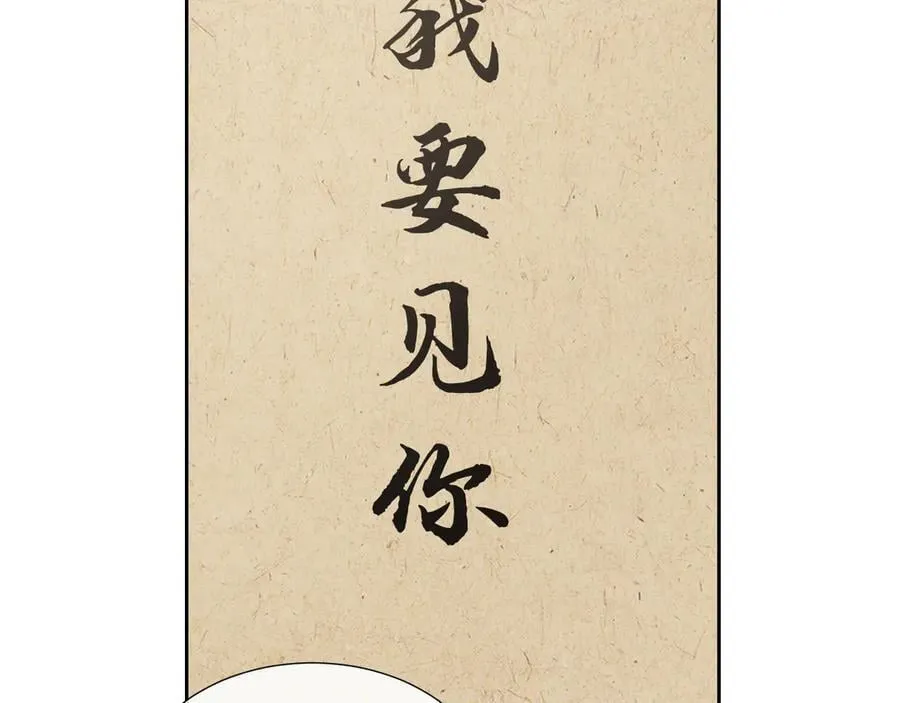 我要见你